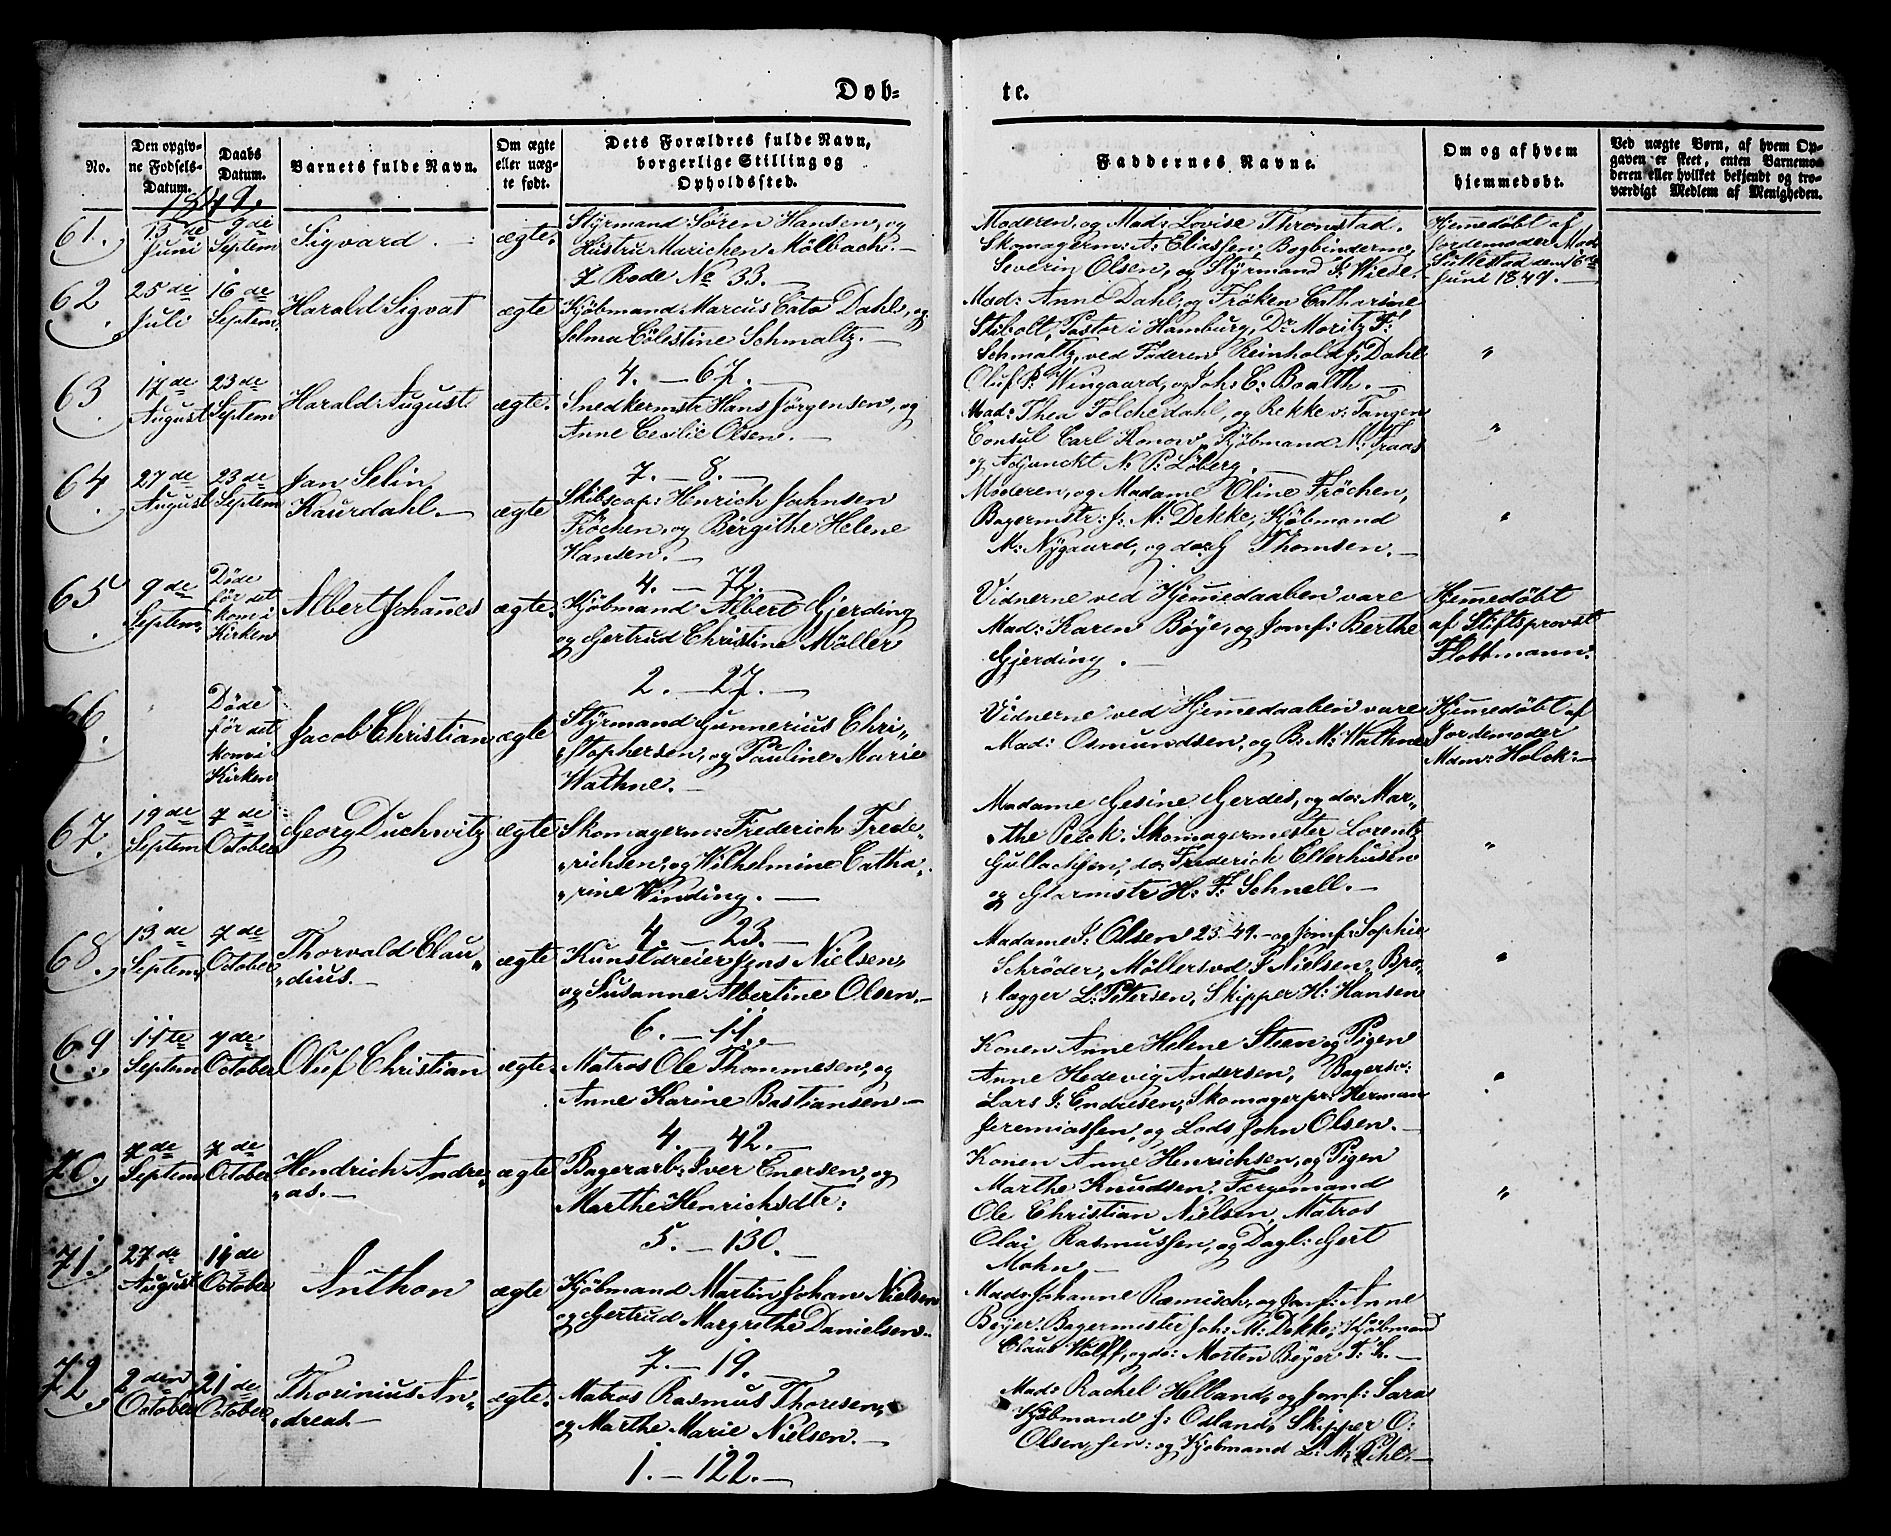 Døb-
te.
No.
Den opgiv-
ne Fødsels-
Datum.
Daabs
Datum.
Barnets fulde Navn.
Om ægte
eller uæg-
te født.
Dets Forældres fulde Navn,
borgerlige Stilling og
Opholdssted.
Faddernes Navne.
Om og af hvem
hjemmedøbt.
Ved uægte Børn, af hvem Op-
gaven er skeet, enten Barnemo-
deren eller hvilket bekjendt og tro-
værdigt Medlem af Menigheden.
1849.
61.
15de
Juni
9de
Septem
Sigvard.
ægte.
Styrmand Sören Hansen, og
Hustru Marichen Mølbach.
7 Rode No 33.
Moderen, og Mad: Lovise Thronstad.
Skomagerm: A: Eliassen, Bogbinderm
Severin Olsen, og Styrmand J: Wiese.
Hjemedøbt af
Jordemoder Mad:
den 16de
Juni 1849.
62.
25de
Juli
16de
Septem
Harald Sigvat
ægte
Kjøbmand Marcus Cato Dahl, og
Selma Cölistine Schmaltz.
4. – 67.
Mad: Anne Dahl, og Frøken Catharine
Stibolt, Pastor i Hamburg, Dr Moritz F:
Schmaltz, ved Faderen Reinholdt, Dahl
Oluf P: Wingaard, og Joh: E: Baalth.
"
63.
17de
August
23de
Septem
Harald August
ægte.
Snedkermstr Hans Jörgensen, og
Anne Cecilie Olsen.
7. – 8.
Mad: Thea Folchedahl, og Rekke v: Tangen
Consul Carl Konow, Kjøbmand M: Traas
og Adjunckt N: P: Løberg.
"
64.
27de
August
23de
Septem
Jan Selin
Kaurdahl.
ægte
Skibscap: Hinrich Jahnsen
Frøchen, og Birgithe Helene
Hansen.
4. – 72.
Moderen, og Madame Oline Frøchen,
Bagermstr: J: M: Dekke, Kjøbmand
M: Nygaard, og do: G Thomsen.
"
65.
9de
Septem.
Døde
før det
kom i
Kirken
Albert Johanes
ægte.
Kjøbmand Albert Gjerding
og Gertrud Christine Møller
2. – 27.
Vidnerne ved Hjemedaaben vare
Mad: Karen Bøye, og Jomf: Berthe
Gjerding.
Hjemedøbt
af Stiftsprovst
Flottmann.
66.
"
Døde
før det
kom i
Kirken
Jacob Christian
ægte
Styrmand Gunnerius Chri-
stophersen, og Pauline Marie
Wathne.
Vidnerne ved Hjemedaaben vare
Mad: Osmundsen, og B: M: Wathne
Hjemedøbt af
Jordemoder
Mdm: Holck.
67.
19de
Septem
7de
October
Georg Duchwitz
ægte
Skomagerm: Frederich Frede-
richsen, og Wilhelmine Catha-
rine Winding.
4. – 23.
Madame Gesine Gerdes, og do: Mar-
the Peick. Skomagermester Lorentz
Gullachsen, do: Frederich Ellerhusen
og Glarmstr H: F: Schnell.
"
68.
13de
Septem
7de
October
Thorvald Clau-
dius.
ægte
Kunstdreier Jens Nielsen
og Susanne Albertine Olsen.
6. – 11.
Madame J: Olsen 23-49. og Jomf: Sophie
Schröder, Möllersvd J Nielsen, Bro-
lægger L: Petersen, Skipper H: Hansen
"
69
11te
Septem
7de
October
Oluf Christian
ægte.
Matros Ole Thommesen, og
Anne Karine Bastiansen
4. – 42.
Konen Anne Helene Steen, og Pigen
Anne Hedevig Andersen, Bagersv:
Lars J: Endresen, Skomagerpr: Herman
Jeremiassen, og Lods John Olsen.
"
70.
7de
Septem
7de
October
Hendrich Andre-
as.
ægte
Bagerarb: Iver Enersen, og
Marthe Henrichsdtr:
5. – 130.
Konen Anne Henrichsen, og Pigen
Marthe Knudsen. Færgemand
Ole Christian Nielsen, Matros
Olai Rasmussen, og Dagl: Gert
Mohn.
"
71.
27de
August
14de
October
Anthon
ægte
Kjøbmand Martin Johan Nielsen
og Gertrud Margrethe Danielsen.
7. – 19.
Mad: Johanne Ramisch, og Jomf: Anne
Beÿer. Bagermester Joh: M: Dekke, Kjøbmand
Claus Wolff, og do: Morten Beÿer
72.
2den
October
21de
October
Thorinius An-
dreas.
ægte.
Matros Rasmus Thoresen,
og Marthe Marie Nielsen.
1. – 122.
Mad: Rachel Helland, og Jomf: Sara
Kjøbmand J: Osland, Skipper O:
Olsen, sen: og Kjøbmand L: M: Pihl.